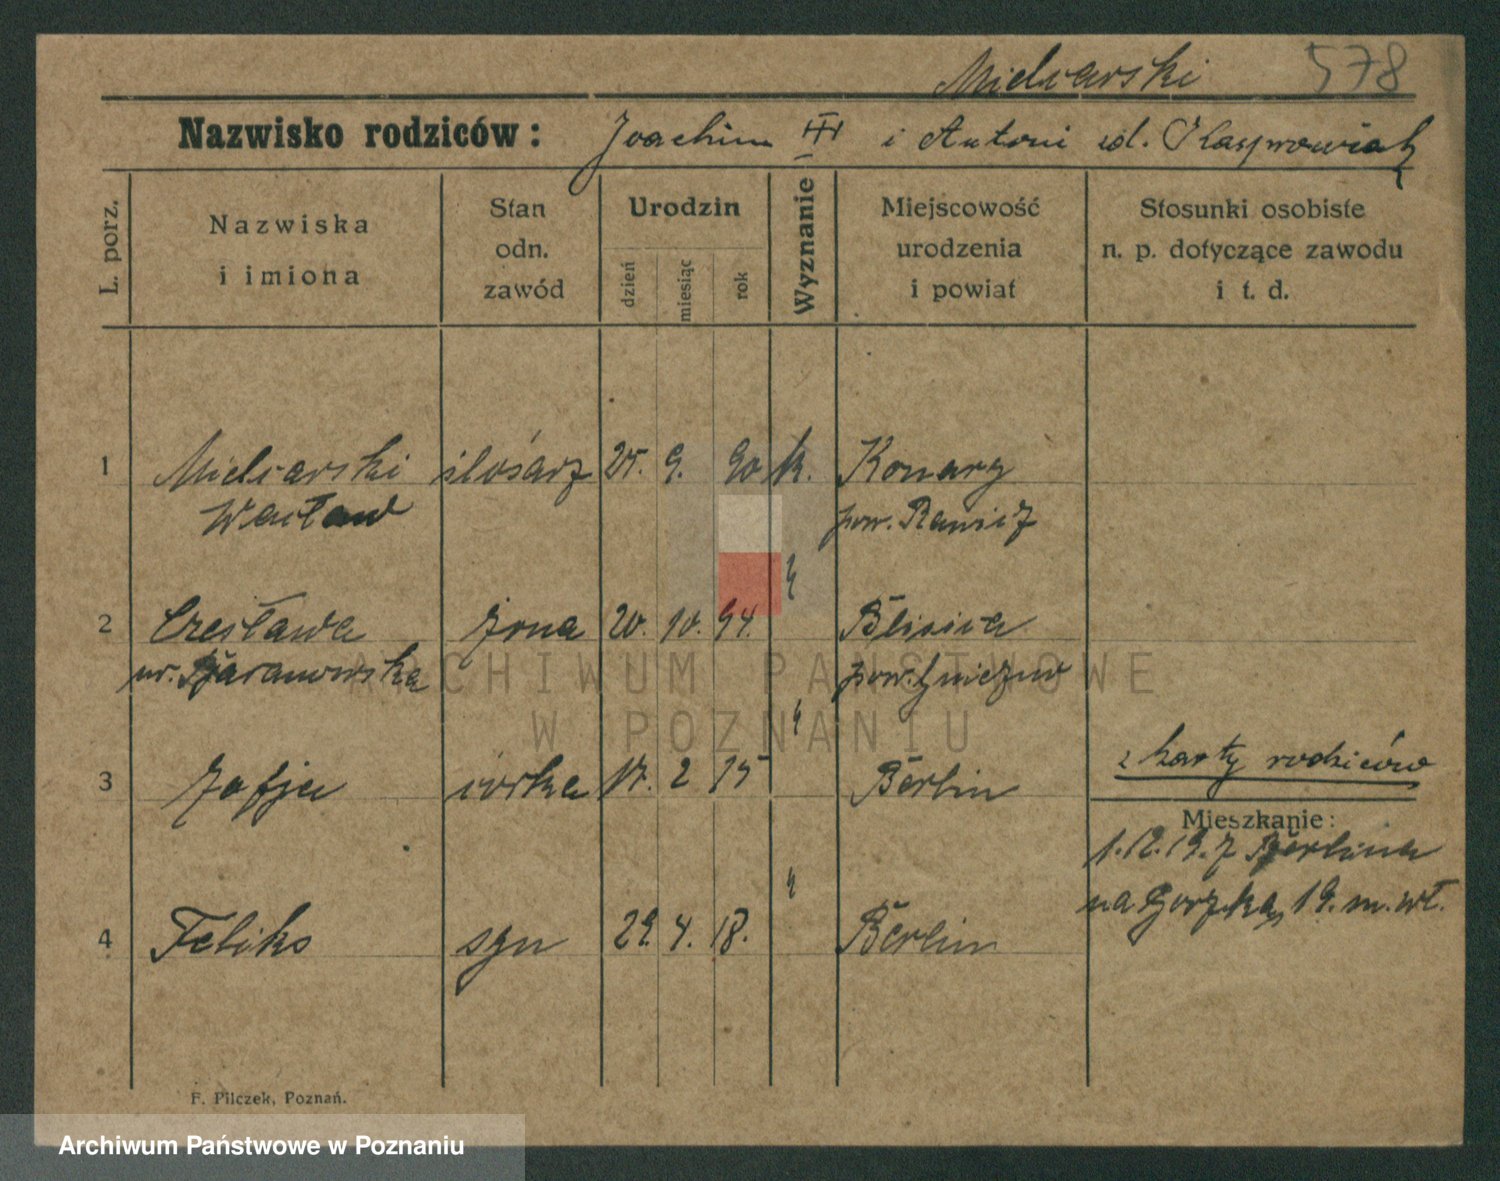 578
Nazwisko rodziców: Joachim III i Antoni
L. porz.
Nazwiska
i imiona
Stan
odn.
zawód
Urodzin
dzień
miesiąc
rok
Wyznanie
Miejscowość
urodzenia
i powiat
Stosunki osobiste
n. p. dotyczące zawodu
i t. d.
1 ślósarz 25. 9. 90 k. Konary
Wacław pow. Rawicz
2 Czesława żona 20. 10. 94.
ur. pow. Gniezno
3 Zofja córka 17. 2 15 Berlin
z karty rodziców
Mieszkanie:
1.12.19. z Berlina
na 19. m. wł.
4 Feliks syn 29. 4. 18. Berlin
F. Pilczek, Poznań.
ARCHIWUM PAŃSTWOWE
W POZNANIU
Archiwum Państwowe w Poznaniu